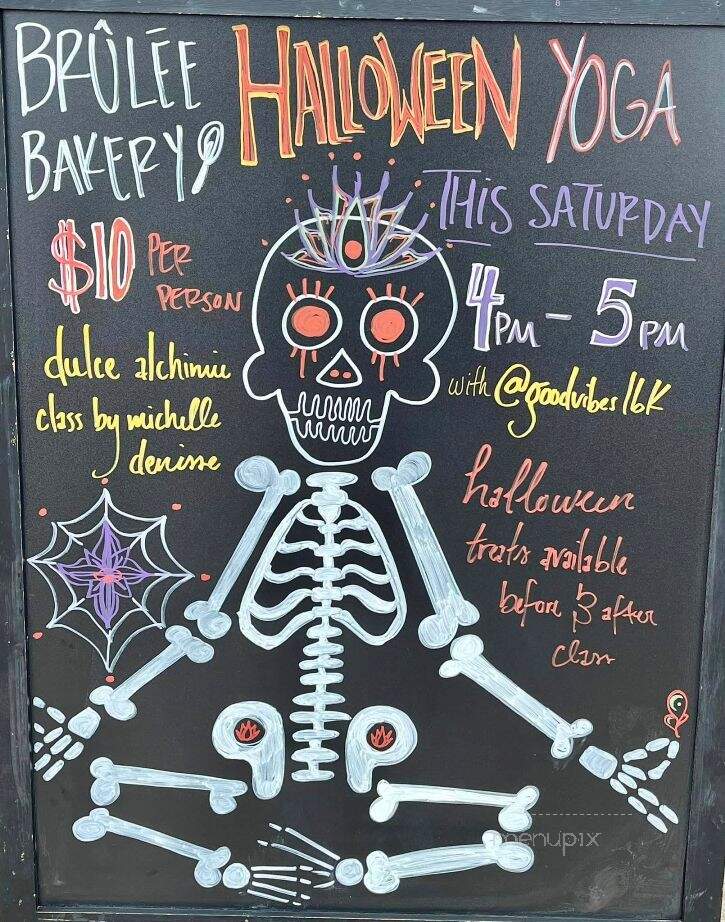 BRÛLÉE
BAKERY
HALLOWEEN YOGA
THIS SATURDAY
$10 PER
PERSON
4PM - 5PM
dulce alchimie
class by michelle
denisse
with @goodvibeslbk
halloween
treats available
before & after
class
menupix